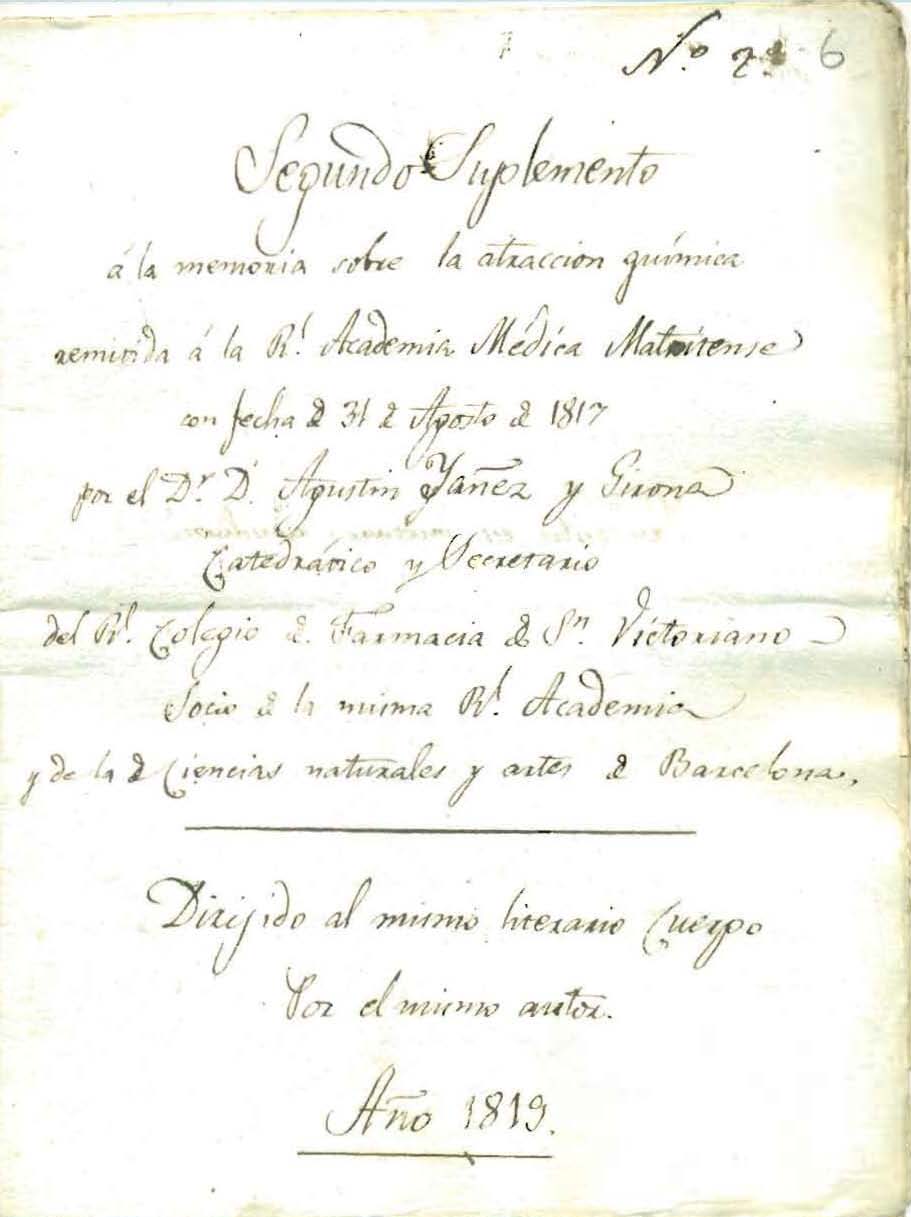 N.º 2.º 6
Segundo Suplemento
á la memoria sobre la atraccion química
remitida á la R.l Academia Médica Matritense
con fecha de 31 de Agosto de 1817
por el D.r D. Agustin Yañez y Girona
Catedrático y Secretario
del R.l Colegio de Farmacia de S.n Victoriano
Socio de la misma R.l Academia
y de la de Ciencias naturales y artes de Barcelona.
Dirijido al mismo literario Cuerpo
Por el mismo autor.
Año 1819.